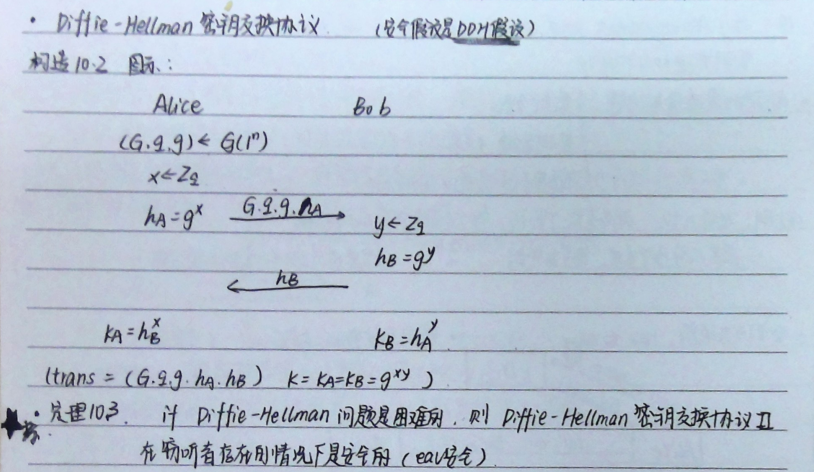 · Diffie-Hellman 密钥交换协议 (安全假设是DDH假设)
构造10.2 图示:
Alice Bob
(G.q.g)←G(1ⁿ)
x←Zq
hA=gˣ G.q.g.hA y←Zq
hB=gʸ
hB
kA=hBˣ kB=hAʸ
(trans=(G.q.g.hA.hB) K=KA=KB=gˣʸ)
★ · 定理10.3. if Diffie-Hellman 问题是困难的.则 Diffie-Hellman 密钥交换协议Π
在窃听者存在的情况下是安全的(eav安全)